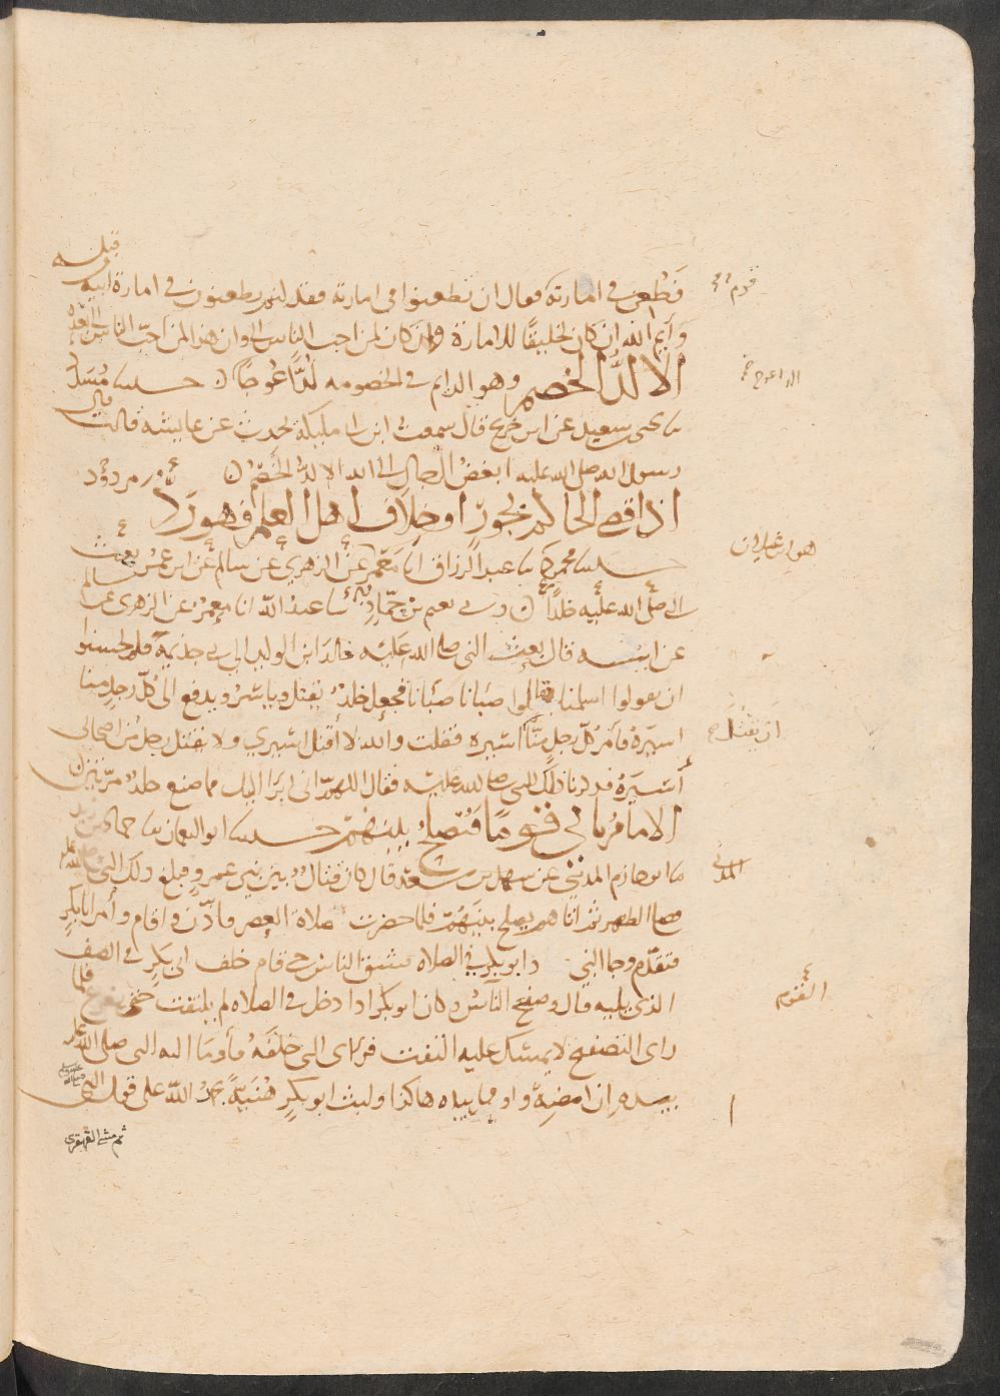 فطُعن في امارته فقال ان تطعنوا في امارته فقد كنتم تطعنون في امارة ابيه
من قبله
قوم
وأيم الله ان كان لخليقًا للامارة وان كان لمن احب الناس الى وان هذا لمن احبّ الناس الي بعده
الالدُّ الخصم وهو الدايم في الخصومه لُدًّا عُوجًا حدثنا مُسَدد
الد اعوج
نا يحيى بن سعيد عن ابن جريج قال سمعت ابن ابي مليكة يحدث عن عايشه قالت قال
رسول الله صلى الله عليه ابغضُ الرجال الى الله الالدُّ الخَصِمُ
اذا قضى الحاكم بجورٍ او خلاف اهل العلم فهو ردّ
مردود
حدثنا محمود نا عبد الرزاق انا مَعْمر عن الزهري عن سالم عن ابن عمر بعث
النبي صلى الله عليه خلدًا وحدثني نعيم بن حمّاد نا عبد الله انا معمر عن الزهري عن سالم
عن ابيه قال بعث النبي صلى الله عليه خالد ابن الوليد الى بني جذيمة فلم يحسنوا
ان يقولوا اسلمنا فقالوا صبانا صبانا فجعل خلد يقتل وياسر ودفع الى كلّ رجل منا
اسيرَهُ فأمر كلّ رجل منّا ان يقتل اسيره فقلت والله لا أقتل اسيري ولا يقتل رجل من اصحابي
أسيرَهُ فذكرنا ذلك للنبي صلى الله عليه فقال اللهم اني ابرأ اليك مما صنع خلد مرتين
الامام ياتي قومًا فيُصلحُ بينهم حدثنا ابو النعمان نا حماد بن زيد
نا ابو حازم المديني عن سهل بن سعد قال كان قتالٌ بين بني عمرو فبلغ ذلك النبي صلى الله عليه
المدني
فصلى الظهر ثم اتاهم يصلح بينهُم فلما حضرت صلاة العصر فأذّن و اقام وأمر ابا بكر
فتقدّم وجا النبي وابو بكر في الصلاه فشق الناس حتى قام خلف ابي بكر في الصف
الذي يليه قال وصفح الناسُ وكان ابو بكر اذا دخل في الصلاه لم يلتفت حتى يفرغ فلما
القوم
راى التصفيح لا يمسك عليه التفت فراى النبي خلفَهُ فأومَا اليه النبي صلى الله عليه
بيده ان امضِهْ واومأ بيده هاكذا ولبث ابو بكرٍ هُنَيَّةً يحمدُ الله على قول النبي
صلى الله عليه وسلم
ثم مشى القهقرى